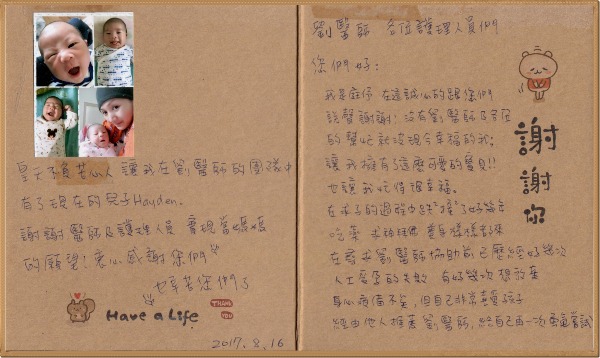 皇天不負苦心人 讓我在劉醫師的團隊中
有了現在的兒子Hayden。
謝謝醫師及護理人員 實現當媽媽
的願望！衷心感謝您們
也辛苦您們了
Have a Life
THANK YOU
2017.2.16
劉醫師 各位護理人員們
您們好：
我是庭伃 在這誠心的跟您們
說聲謝謝！沒有劉醫師及各位
的幫忙就沒現今幸福的我；
讓我擁有了這麼可愛的寶貝！！
也讓我吃得很幸福。
在求子的過程中跌跌撞撞了好幾年
吃藥 求神拜佛 費身樣樣都來
在尋求劉醫師協助前已歷經好幾次
人工受孕的失敗 有好幾次想放棄
身心疲憊不矣，但自己非常喜愛孩子
經由他人推薦劉醫師，給自己再一次勇氣嘗試
謝謝你